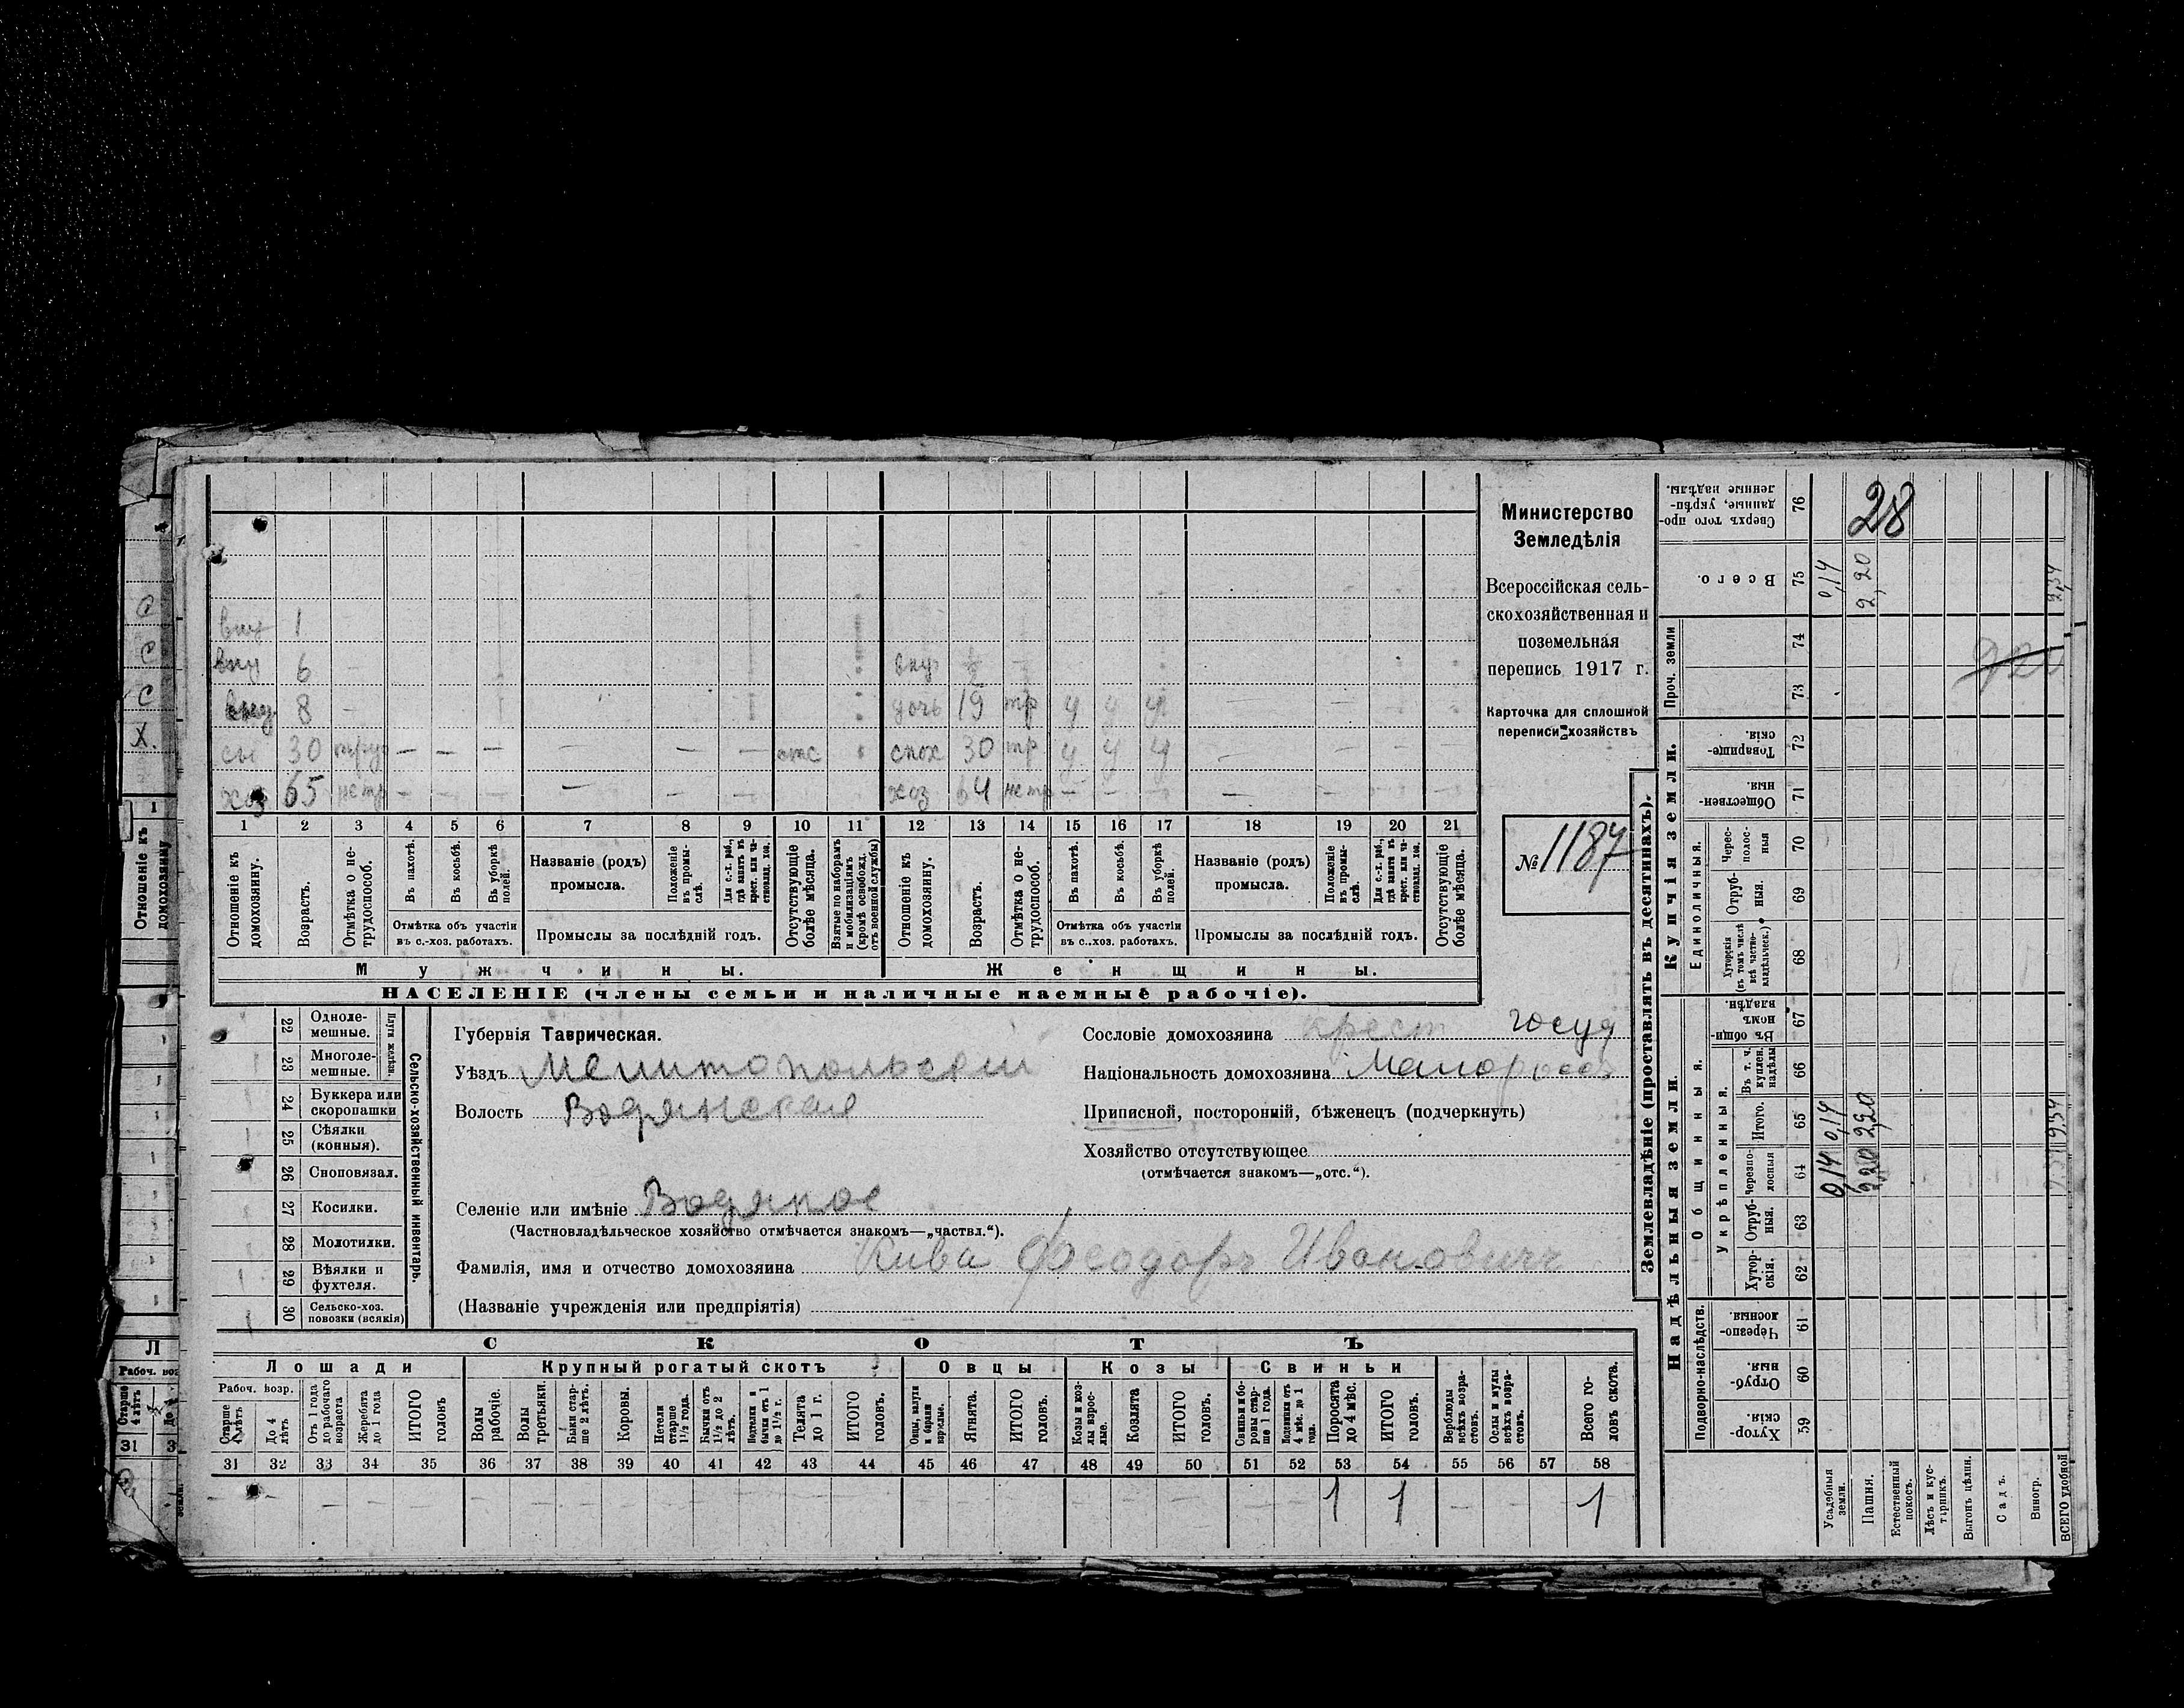 Министерство
Земледѣлія
Всероссійская сель-
скохозяйственная и
поземельная
перепись 1917 г.
Карточка для сплошной
переписи хозяйствъ
№ 1187
вну 1
вну 6 вну ½
вну 8 дочь 19 тр у у у
сы 30 отс снох 30 тр у у у
хоз 65 нетр хоз 64 нетр
1 2 3 4 5 6 7 8 9 10 11 12 13 14 15 16 17 18 19 20 21
Отношеніе къ домохозяину.
Возрастъ.
Отмѣтка о не-трудоспособ.
Въ пахотѣ.
Въ косьбѣ.
Въ уборкѣ полей.
Отмѣтка объ участіи
въ с.-хоз. работахъ.
Названіе (родъ)
промысла.
Положеніе въ промы-слѣ.
Для с.-х. раб., гдѣ занятъ въ крест. или ча-стновлад. хоз.
Промыслы за послѣдній годъ.
Отсутствующіе болѣе мѣсяца.
Взятые по наборамъ и мобилизаціямъ (кромѣ освобожд. отъ военной службы)
Отношеніе къ домохозяину.
Возрастъ.
Отмѣтка о не-трудоспособ.
Въ пахотѣ.
Въ косьбѣ.
Въ уборкѣ полей.
Отмѣтка объ участіи
въ с..хоз. работахъ.
Названіе (родъ)
промысла.
Положеніе въ промы-слѣ.
Для с.-х. раб., гдѣ занятъ въ крест. или ча-стновлад. хоз.
Промыслы за послѣдній годъ.
Отсутствующіе болѣе мѣсяца.
Мужчины. Женщины.
НАСЕЛЕНІЕ (члены семьи и наличные наемные рабочіе).
22 Одноле-мешные.
23 Многоле-мешные.
Плуги желѣзн.
24 Буккера или скоропашки
25 Сѣялки (конныя).
26 Сноповязал.
27 Косилки.
28 Молотилки.
29 Вѣялки и фухтеля.
30 Сельско-хоз. повозки (всякія)
Сельско-хозяйственный инвентарь.
Губернія Таврическая.
Уѣздъ Мелитопольскій
Волость Водянская
Селеніе или имѣніе Водяное
(Частновладѣльческое хозяйство отмѣчается знакомъ—„частвл.“).
Фамилія, имя и отчество домохозяина Кива Феодоръ Ивановичъ
(Названіе учрежденія или предпріятія)
Сословіе домохозяина крест госуд
Національность домохозяина Малороссъ
Приписной, посторонній, бѣженецъ (подчеркнуть)
Хозяйство отсутствующее
(отмѣчается знакомъ—„отс.“).
СКОТЪ
Лошади Крупный рогатый скотъ Овцы Козы Свиньи
Рабоч. возр.
Старше 4 лѣтъ
До 4 лѣтъ
Отъ 1 года до рабочаго возраста
Жеребята до 1 года
ИТОГО головъ
Волы рабочіе.
Волы третьяки.
Быки стар-ше 2 лѣтъ.
Коровы.
Нетели старше 1½ года.
Бычки отъ 1½ до 2 лѣтъ.
Подтелки и бычки отъ 1 до 1½ г.
Телята до 1 г.
ИТОГО головъ.
Овцы, валухи и бараны взрослые.
Ягнята.
ИТОГО головъ.
Козы и коз-лы взрос-лые.
Козлята
ИТОГО головъ.
Свиньи и бо-ровы стар-ше 1 года.
Подсвинки отъ 4 мѣс. до 1 года.
Поросята до 4 мѣс.
ИТОГО головъ.
Верблюды всѣхъ возра-стовъ.
Ослы и мулы всѣхъ возра-стовъ.
Всего го-ловъ скота.
31 32 33 34 35 36 37 38 39 40 41 42 43 44 45 46 47 48 49 50 51 52 53 54 55 56 57 58
1 1 1
Землевладѣніе (проставлять въ десятинахъ).
Надѣльныя земли. Купчія земли.
Подворно-наслѣдств.
Общинныя.
Укрѣпленныя.
Единоличныя.
Проч. земли
Хутор-скія. 59
Отруб-ныя. 60
Черезпо-лосныя. 61
Хутор-скія. 62
Отруб-ныя. 63
Черезпо-лосныя 64
Итого. 65
Въ т. ч. куплен. надѣлы 66
Въ общи-номъ владѣн. 67
Хуторскія (въ томъ числѣ всѣ частно-владѣльческ.) 68
Отруб-ныя. 69
Черес-полос-ныя 70
Обществен-ныя. 71
Товарище-скія. 72
73
74
Всего. 75
Сверхъ того про-данные, укрѣп-ленные надѣлы. 76
Усадебныя земли. 0,14 0,14 0,14
Пашня. 2,20 2,20 2,20 28
Естественный покосъ.
Лѣсъ и кус-тарникъ.
Выгонъ цѣлин.
Садъ.
Виногр.
ВСЕГО удобной 2,34 2,34
Отношеніе къ домохозяину
Рабоч. воз
Старше 4 лѣтъ
31